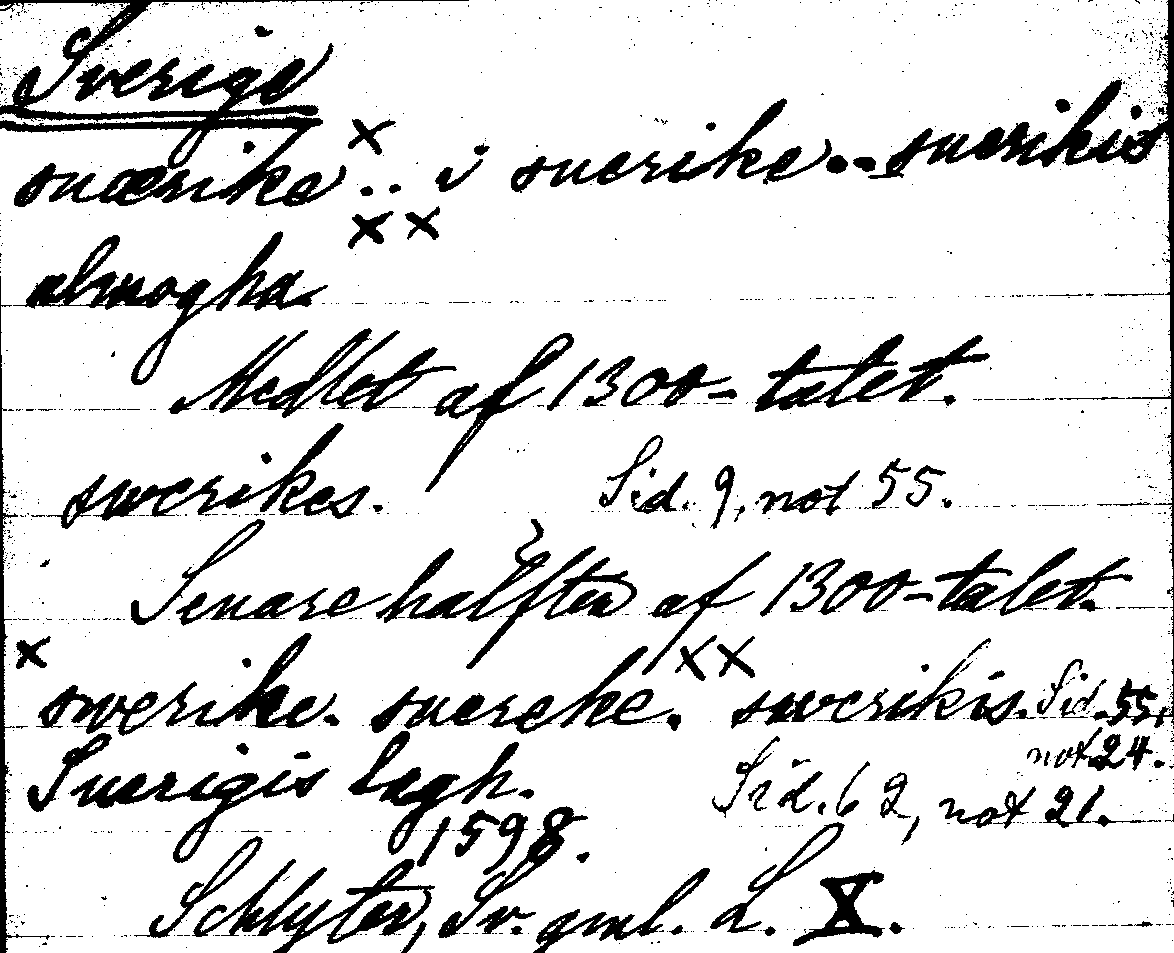 Sverige
suærike × .. i suerike .. suerikis
×× almogha.
Medlet af 1300-talet.
swerikes. Sid. 9, not 55.
Senare hälften af 1300-talet.
× swerike. suereke. ×× swerikis. Sid. 55,
not 24.
Suerigis lagh. Sid. 62, not 21.
1598.
Schlyter, Sv. gml. L. X.